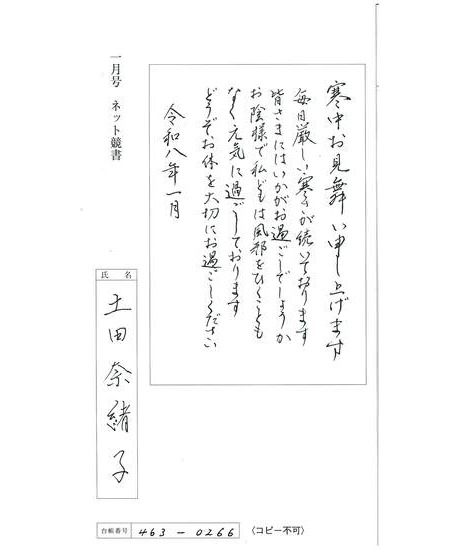 寒中お見舞い申し上げます
毎日厳しい寒さが続いております
皆さまにはいかがお過ごしでしょうか
お陰様で私どもは風邪をひくことも
なく元気に過ごしております
どうぞ、お体を大切にお過ごしください
令和八年一月
一月号 ネット競書
氏名
土田奈緒子
台帳番号 463-0266 〈コピー不可〉